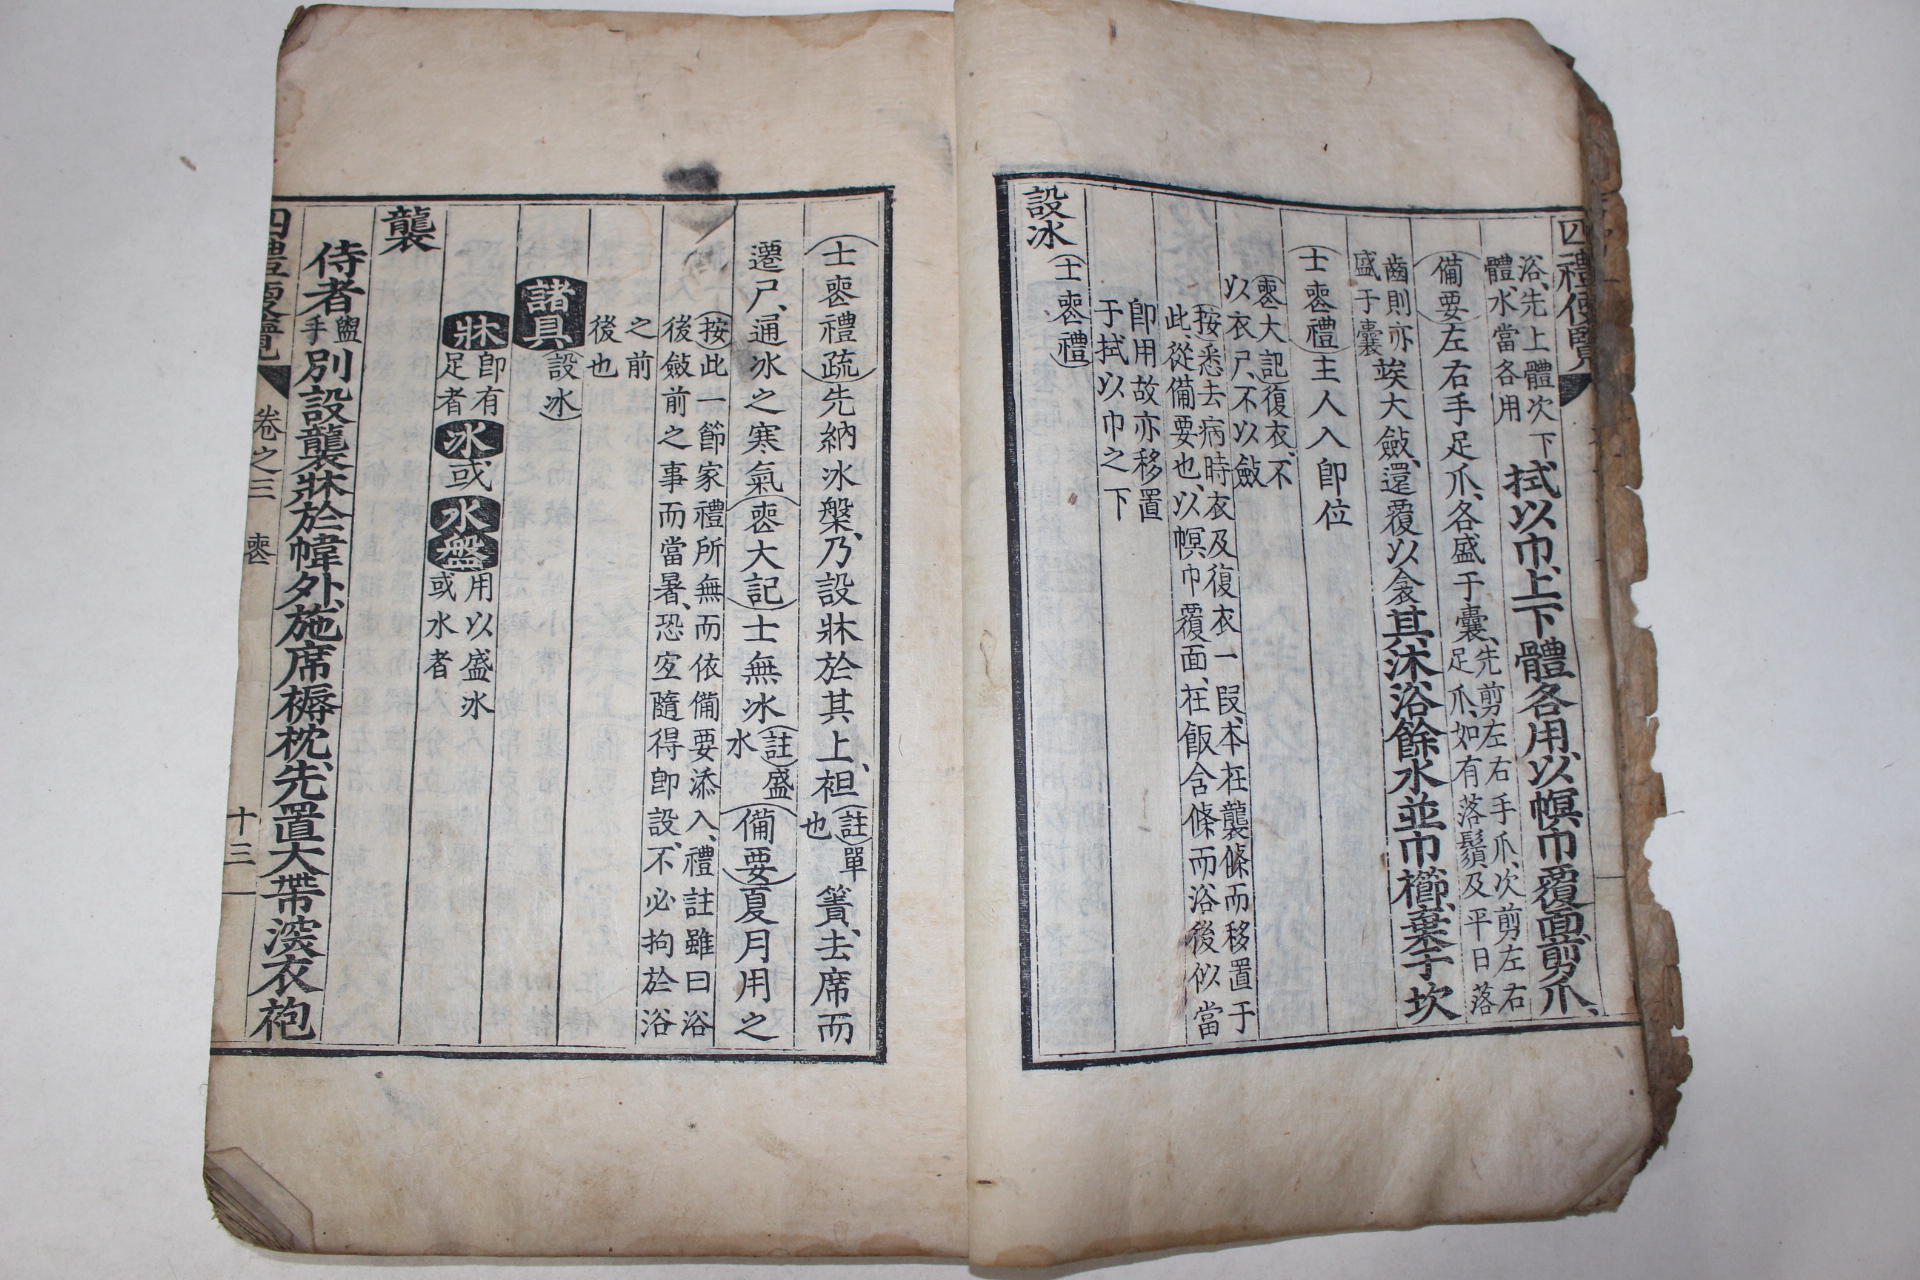 四禮便覽
浴先上體次下
體水當各用
拭以巾上下體各用以幎巾覆面剪爪
備要左右手足爪各盛于囊先剪左右手爪次剪左右
足爪如有落鬚及平日落
齒則亦
盛于囊
竢大斂還覆以衾其沐浴餘水並巾櫛棄于坎
士喪禮主人入卽位
喪大記復衣不
以衣尸不以斂
按悉去病時衣及復衣一段本在襲條而移置于
此從備要也以幎巾覆面在飯含條而浴後似當
卽用故亦移置
于拭以巾之下
設冰
士喪禮
士喪禮疏先納冰槃乃設牀於其上袒註單
也
簀去席而
遷尸通冰之寒氣喪大記士無冰註盛
水
備要夏月用之
按此一節家禮所無而依備要添入禮註雖曰浴
後斂前之事而當暑恐宜隨得卽設不必拘於浴
之前
後也
諸具設冰
牀卽有
足者
冰或水盤用以盛冰
或水者
襲
侍者盥
手
別設襲牀於幃外施席褥枕先置大帶深衣袍
四禮便覽
卷之三
喪
十三